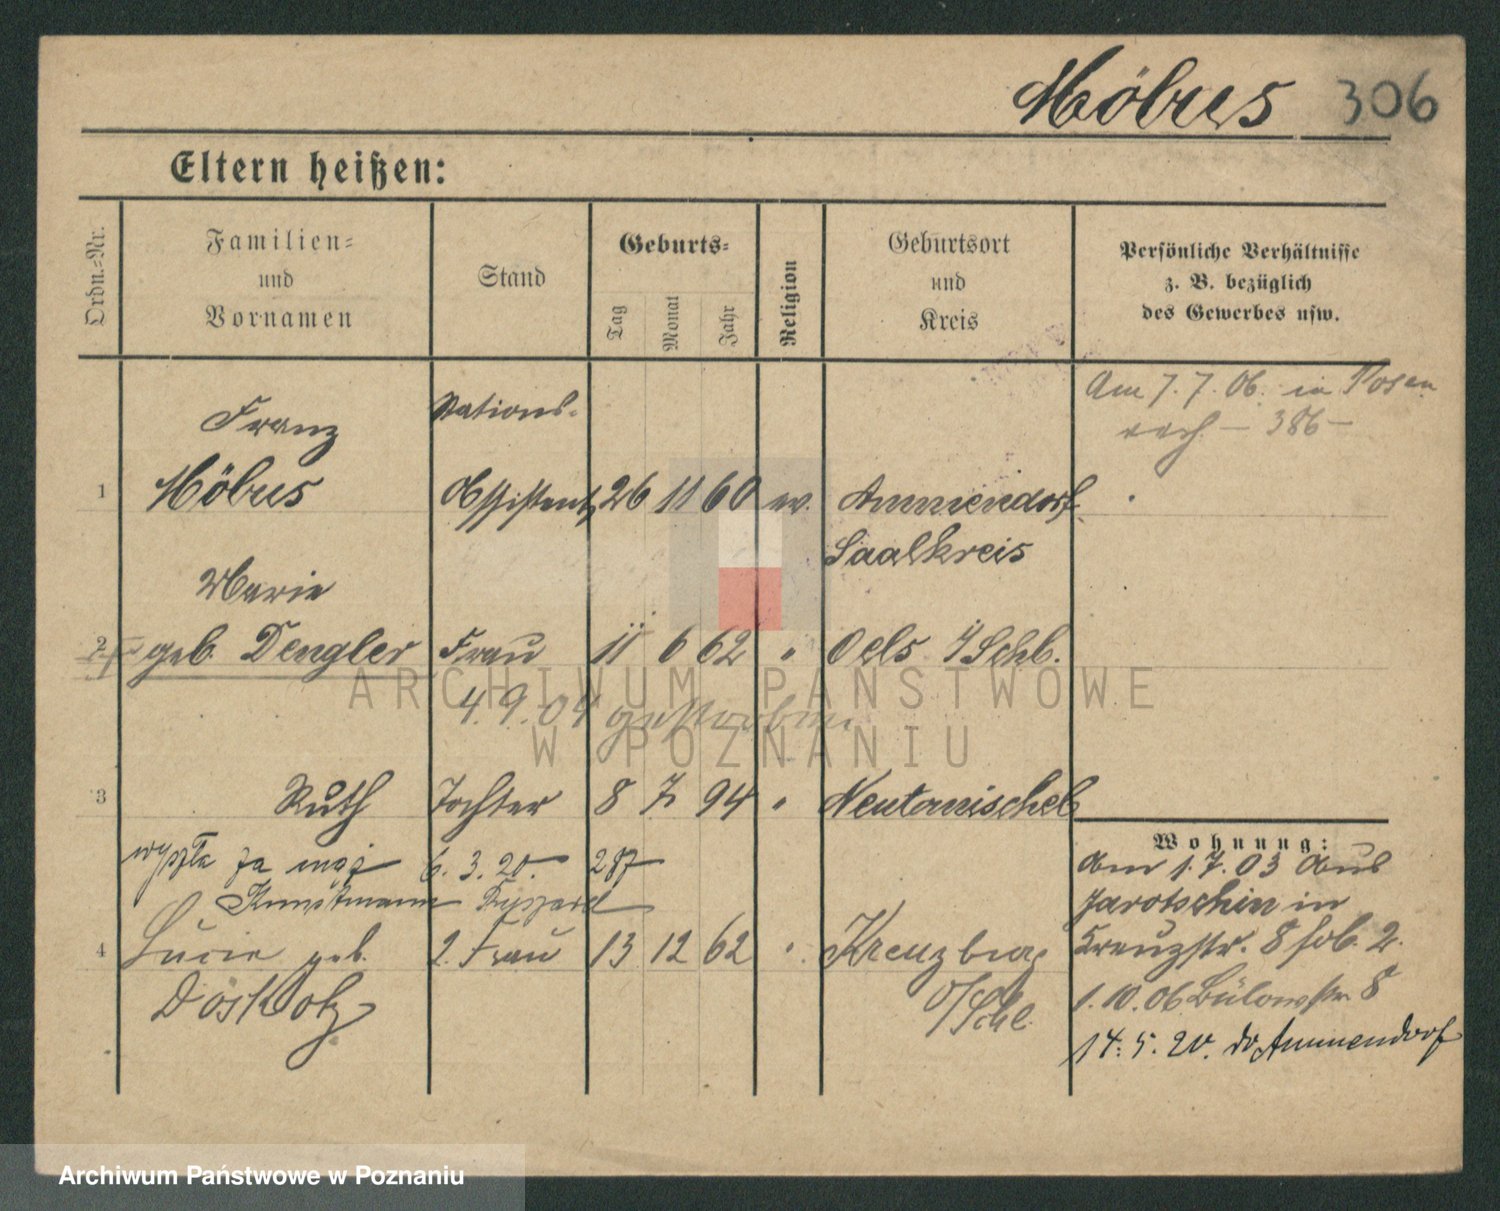 Möbus 306
Eltern heißen:
Ordn.-Nr.
Familien-
und
Vornamen
Stand
Geburts-
Tag
Monat
Jahr
Religion
Geburtsort
und
Kreis
Persönliche Verhältnisse
z. B. bezüglich
des Gewerbes usw.
Am 7. 7. 06. in Posen
— 386 —
Franz Stations-
1 Möbus Assistent 26 11 60 ev. Ammendorf
Saalkreis
Marie
2 geb. Dengler Frau 11 6 62 " Oels Schl.
4. 9. 04 gestorben
3 Ruth Tochter 8 7 94 " Neutomischel
wyszła za mąż 6. 3. 20. 287
Kunstmann
4 Lucie geb. 2. Frau 13 12 62 " Kreuzburg
O/Schl.
Wohnung:
Am 1. 7. 03 aus
Jarotschin in
Kreuzstr. 8 2.
1. 10. 06 Bülowstr. 8
14. 5. 20. do Ammendorf
ARCHIWUM PAŃSTWOWE
W POZNANIU
Archiwum Państwowe w Poznaniu